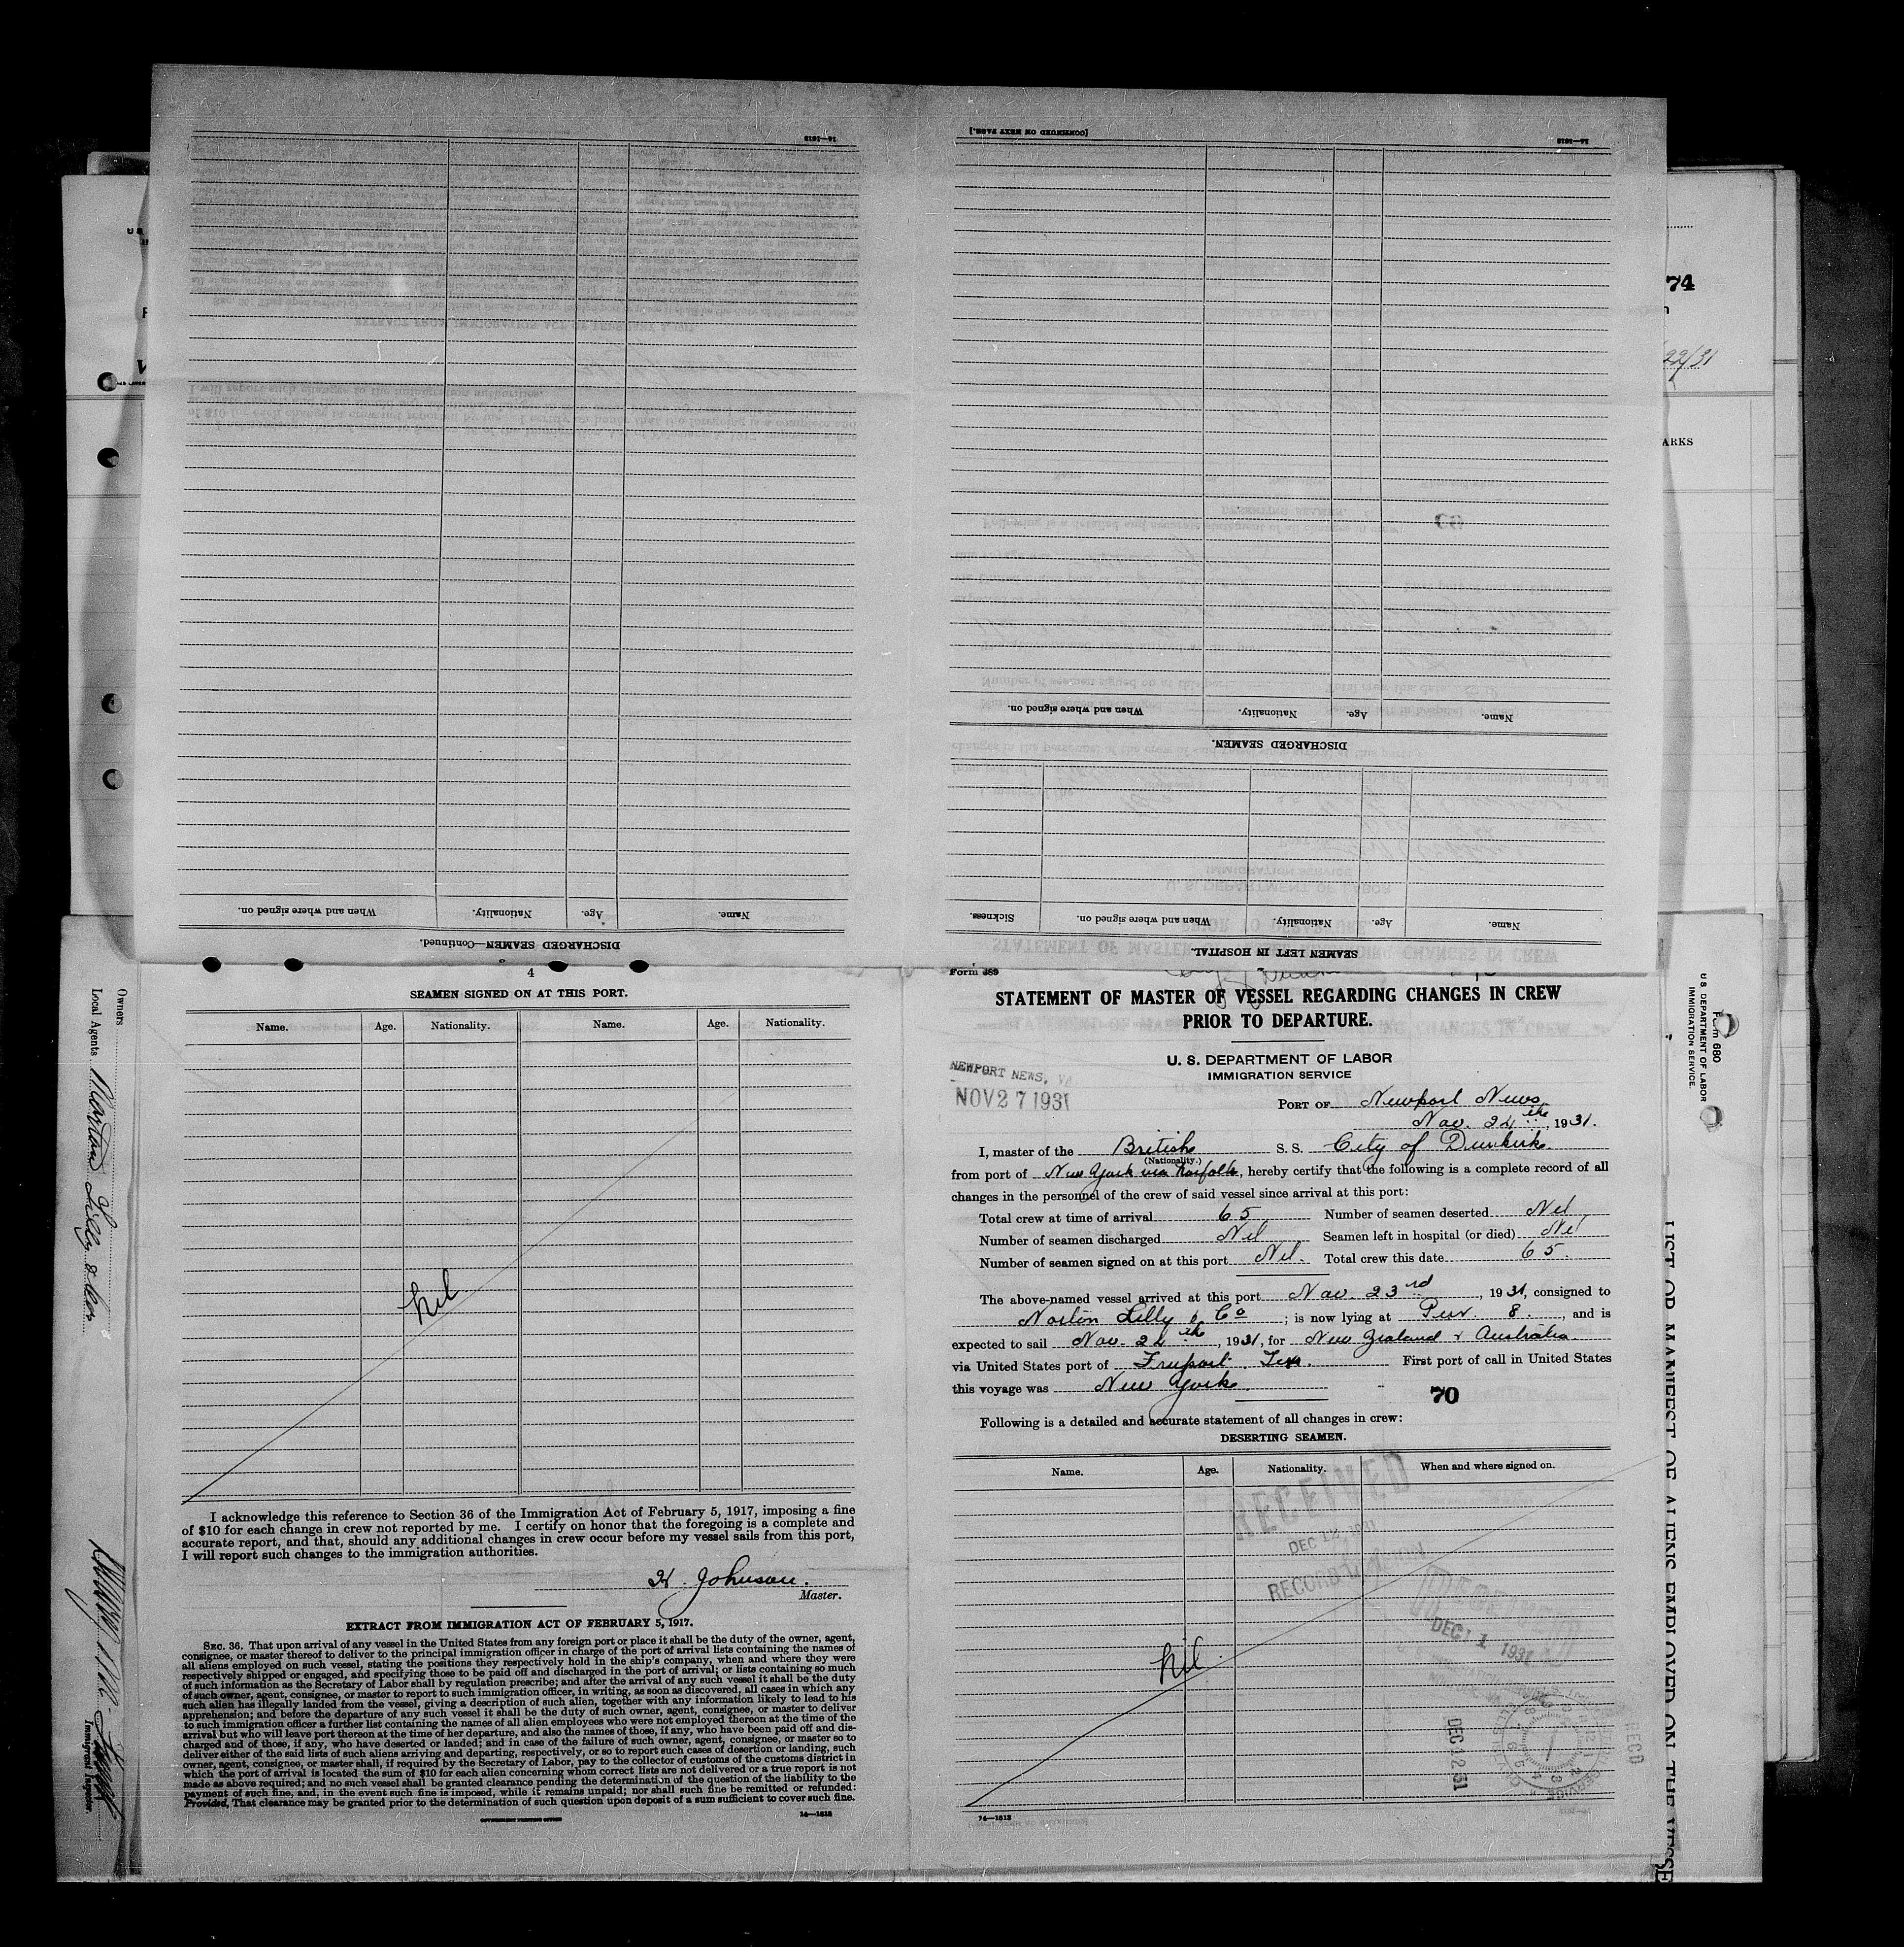 [CONTINUED ON NEXT PAGE.]
14—1613
14—1613
Name.
Age.
Nationality.
When and where signed on.
DISCHARGED SEAMEN.
Name.
Age.
Nationality.
When and where signed on.
Sickness.
SEAMEN LEFT IN HOSPITAL.
Name.
Age.
Nationality.
When and where signed on.
DISCHARGED SEAMEN—Continued.
74
22/31
ARKS
4
SEAMEN SIGNED ON AT THIS PORT.
Name. Age. Nationality. Name. Age. Nationality.
Nil
I acknowledge this reference to Section 36 of the Immigration Act of February 5, 1917, imposing a fine
of $10 for each change in crew not reported by me. I certify on honor that the foregoing is a complete and
accurate report, and that, should any additional changes in crew occur before my vessel sails from this port,
I will report such changes to the immigration authorities.
H. Johnson.
Master.
EXTRACT FROM IMMIGRATION ACT OF FEBRUARY 5, 1917.
SEC. 36. That upon arrival of any vessel in the United States from any foreign port or place it shall be the duty of the owner, agent,
consignee, or master thereof to deliver to the principal immigration officer in charge of the port of arrival lists containing the names of
all aliens employed on such vessel, stating the positions they respectively hold in the ship's company, when and where they were
respectively shipped or engaged, and specifying those to be paid off and discharged in the port of arrival; or lists containing so much
of such information as the Secretary of Labor shall by regulation prescribe; and after the arrival of any such vessel it shall be the duty
of such owner, agent, consignee, or master to report to such immigration officer, in writing, as soon as discovered, all cases in which any
such alien has illegally landed from the vessel, giving a description of such alien, together with any information likely to lead to his
apprehension; and before the departure of any such vessel it shall be the duty of such owner, agent, consignee, or master to deliver
to such immigration officer a further list containing the names of all alien employees who were not employed thereon at the time of the
arrival but who will leave port thereon at the time of her departure, and also the names of those, if any, who have been paid off and dis-
charged and of those, if any, who have deserted or landed; and in case of the failure of such owner, agent, consignee, or master so to
deliver either of the said lists of such aliens arriving and departing, respectively, or so to report such cases of desertion or landing, such
owner, agent, consignee, or master shall, if required by the Secretary of Labor, pay to the collector of customs of the customs district in
which the port of arrival is located the sum of $10 for each alien concerning whom correct lists are not delivered or a true report is not
made as above required; and no such vessel shall be granted clearance pending the determination of the question of the liability to the
payment of such fine, and, in the event such fine is imposed, while it remains unpaid; nor shall such fine be remitted or refunded:
Provided, That clearance may be granted prior to the determination of such question upon deposit of a sum sufficient to cover such fine.
GOVERNMENT PRINTING OFFICE
14—1613
Form 689
STATEMENT OF MASTER OF VESSEL REGARDING CHANGES IN CREW
PRIOR TO DEPARTURE.
U. S. DEPARTMENT OF LABOR
IMMIGRATION SERVICE
NEWPORT NEWS, VA
NOV 27 1931
PORT OF Newport News
Nov. 24th, 1931.
I, master of the British S. S. City of Dunkirk
(Nationality.)
from port of New York via Norfolk, hereby certify that the following is a complete record of all
changes in the personnel of the crew of said vessel since arrival at this port:
Total crew at time of arrival 65 Number of seamen deserted Nil
Number of seamen discharged Nil Seamen left in hospital (or died) Nil
Number of seamen signed on at this port Nil. Total crew this date 65.
The above-named vessel arrived at this port Nov. 23rd, 1931, consigned to
Norton Lilly & Co; is now lying at Pier 8., and is
expected to sail Nov. 24th, 1931, for New Zealand & Australia
via United States port of Freeport. Tex. First port of call in United States
this voyage was New York.
70
Following is a detailed and accurate statement of all changes in crew:
DESERTING SEAMEN.
Name. Age. Nationality. When and where signed on.
RECEIVED
RECORD
DEC 11 1931
Nil
DEC 12 31
RECD
14—1613
Owners
Local Agents Norton Lilly & Co
Immigrant Inspector
Form 680
U.S. DEPARTMENT OF LABOR
IMMIGRATION SERVICE
LIST OR MANIFEST OF ALIENS EMPLOYED ON THE VESSE